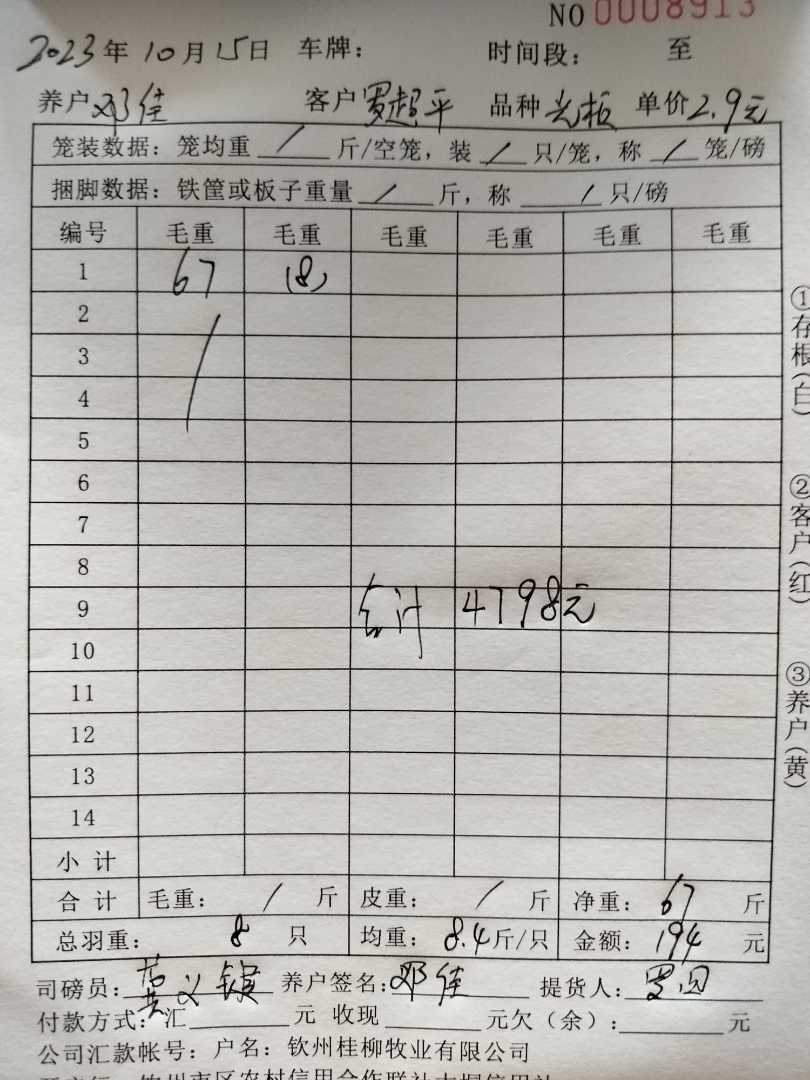 NO 0008913
2023年10月15日 车牌: 时间段: 至
养户邓佳 客户罗超平 品种光板 单价2.9元
笼装数据: 笼均重 / 斤/空笼, 装 / 只/笼, 称 / 笼/磅
捆脚数据: 铁筐或板子重量 / 斤, 称 / 只/磅
编号 毛重 毛重 毛重 毛重 毛重 毛重
1 67 (8)
2
3
4
5
6
7
8
9 合计 4798元
10
11
12
13
14
小计
合计 毛重: / 斤 皮重: / 斤 净重: 67 斤
总羽重: 8 只 均重: 8.4斤/只 金额: 194 元
司磅员: 黄义键 养户签名: 邓佳 提货人: 罗
付款方式: 汇 元 收现 元欠(余): 元
公司汇款帐号: 户名: 钦州桂柳牧业有限公司
①存根(白)
②客户(红)
③养户(黄)